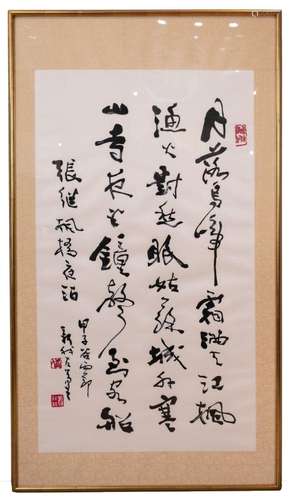 月落烏啼霜滿天江楓
漁火對愁眠姑蘇城外寒
山寺夜半鐘聲到客船
張继楓橋夜泊
甲子谷雨節